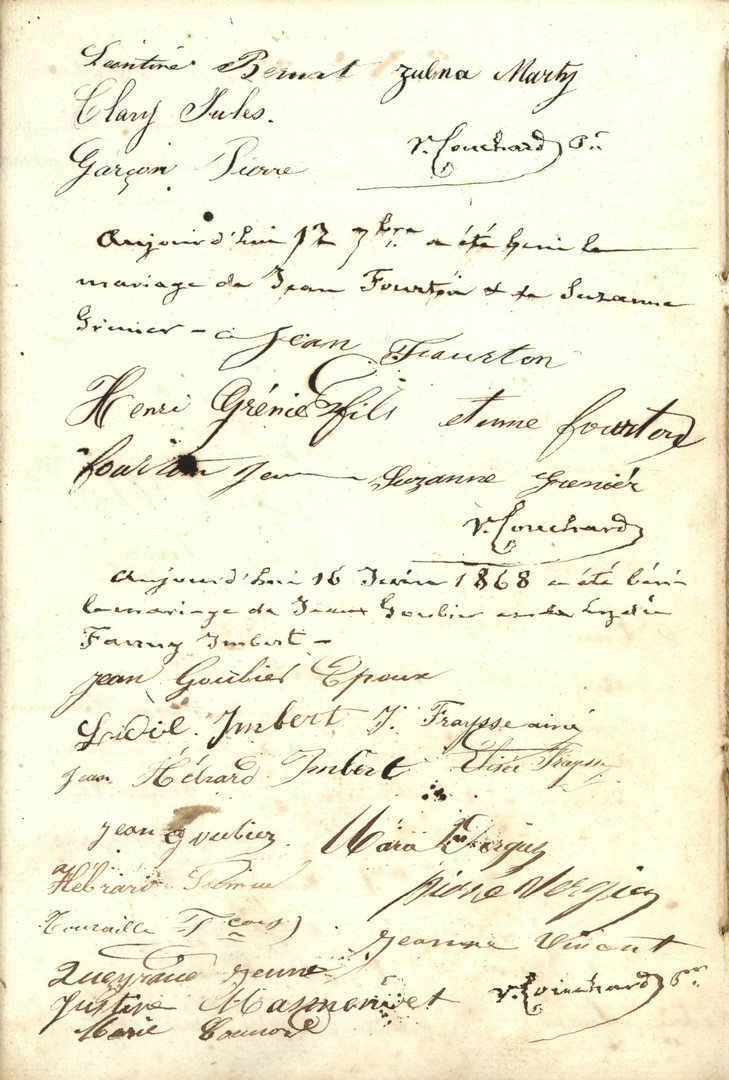 Benoit zulma Marty
Clary Jules.
V. Couchard pr
Garçon Pierre
Aujourd'hui 17 7bre a été béni le
mariage de Jean Fourton & de Suzanne
Grenier - Jean Fourton
Henri Grénier fils fourton
fourton Jean Suzanne Grenier
V. Couchard
Aujourd'hui 16 Juin 1868 a été béni
le mariage de Jean Goubier Lydie
Fanny Imbert -
jean Goubier Epoux
Lidie. Imbert J. Fraysse ainé
Jean Hébrard Imbert Elisée Fraysse
jean goubier. Vergin
Hébrard
Pierre Vergin
Touraille
Jeanne Vincent
Queyraud jeune
Justine V. Couchard pr
Marie